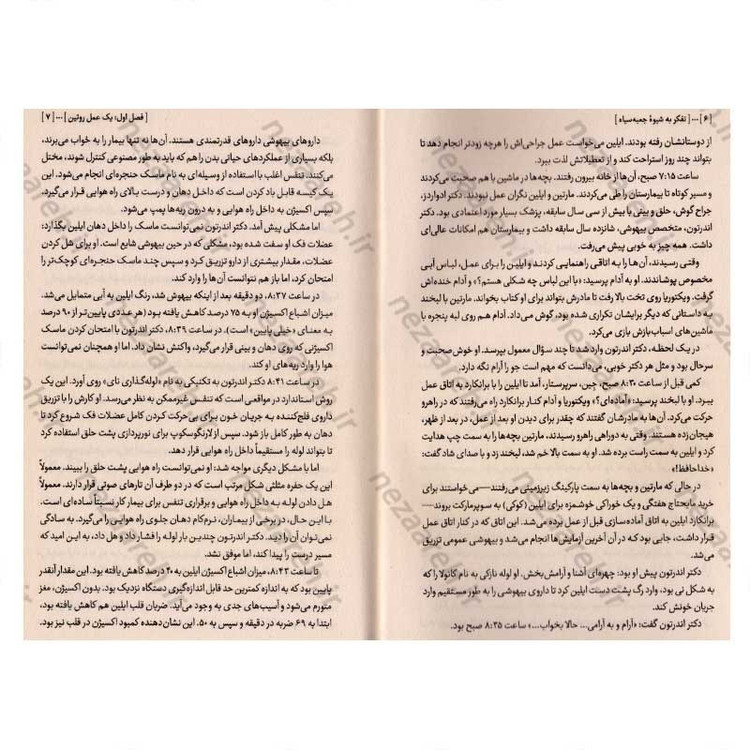 [ ۶ ] ... [ تفکر به شیوهٔ جعبه‌سیاه ]
از دوستانشان رفته بودند. ایلین می‌خواست عمل جراحی‌اش را هرچه زودتر انجام دهد تا
بتواند چند روز استراحت کند و از تعطیلاتش لذت ببرد.
ساعت ۷:۱۵ صبح، آن‌ها از خانه بیرون رفتند. بچه‌ها در ماشین با هم صحبت می‌کردند
و مسیر کوتاه تا بیمارستان را طی می‌کردند. مارتین و ایلین نگران عمل نبودند. دکتر ادواردز،
جراح گوش، حلق و بینی با بیش از سی سال سابقه، پزشک بسیار مورد اعتمادی بود. دکتر
اندرتون، متخصص بیهوشی، شانزده سال سابقه داشت و بیمارستان هم امکانات عالی‌ای
داشت. همه چیز به خوبی پیش می‌رفت.
وقتی رسیدند، آن‌ها را به اتاقی راهنمایی کردند و ایلین را برای عمل، لباس آبی
مخصوص پوشاندند. او به آدام پرسید: «با این لباس چه شکلی هستم؟» و آدام خنده‌اش
گرفت. ویکتوریا روی تخت بالا رفت تا مادرش بتواند برای او کتاب بخواند. مارتین با لبخند
به داستانی که دیگر برایشان تکراری شده بود، گوش می‌داد. آدام هم روی لبه پنجره با
ماشین‌های اسباب‌بازش بازی می‌کرد.
در یک لحظه، دکتر اندرتون وارد شد تا چند سؤال معمول بپرسد. او خوش‌صحبت و
سرحال بود و مثل هر دکتر خوبی، می‌دانست که مهم است جو را آرام نگه دارد.
کمی قبل از ساعت ۸:۳۰ صبح، چین، سرپرستار، آمد تا ایلین را با برانکارد به اتاق عمل
ببرد. او با لبخند پرسید: «آماده‌ای؟» ویکتوریا و آدام کنار برانکارد راه می‌رفتند که در راهرو
حرکت می‌کرد. آن‌ها به مادرشان گفتند که چقدر برای دیدن او بعد از عمل، در بعد از ظهر،
هیجان‌زده هستند. وقتی به دوراهی راهرو رسیدند، مارتین بچه‌ها را به سمت چپ هدایت
کرد و ایلین به سمت راست برده شد. او به سمت بالا خم شد، لبخند زد و با صدای شاد گفت:
«خداحافظ!»
در حالی که مارتین و بچه‌ها به سمت پارکینگ زیرزمینی می‌رفتند—می‌خواستند برای
خرید مایحتاج هفتگی و یک خوراکی خوشمزه برای ایلین (کوکی) به سوپرمارکت بروند—
برانکارد ایلین به اتاق آماده‌سازی قبل از عمل برده می‌شد. این اتاق که در کنار اتاق عمل
قرار داشت، جایی بود که در آن آخرین آزمایش‌ها انجام می‌شد و بیهوشی عمومی تزریق
می‌شد.
دکتر اندرتون پیش او بود: چهره‌ای آشنا و آرامش‌بخش. او لوله نازکی به نام کانولا را که
به شکل نی بود، وارد رگ پشت دست ایلین کرد تا داروی بیهوشی را به طور مستقیم وارد
جریان خونش کند.
دکتر اندرتون گفت: «آرام و به آرامی... حالا بخواب...» ساعت ۸:۳۵ صبح بود.
[ فصل اول: یک عمل روتین ] ... [ ۷ ]
داروهای بیهوشی داروهای قدرتمندی هستند. آن‌ها نه تنها بیمار را به خواب می‌برند،
بلکه بسیاری از عملکردهای حیاتی بدن را هم که باید به طور مصنوعی کنترل شوند، مختل
می‌کنند. تنفس اغلب با استفاده از وسیله‌ای به نام ماسک حنجره‌ای انجام می‌شود. این
یک کیسه قابل باد کردن است که داخل دهان و درست بالای راه هوایی قرار می‌گیرد.
سپس اکسیژن به داخل راه هوایی و به درون ریه‌ها پمپ می‌شود.
اما مشکلی پیش آمد. دکتر اندرتون نمی‌توانست ماسک را داخل دهان ایلین بگذارد:
عضلات فک او سفت شده بود، مشکلی که در حین بیهوشی شایع است. او برای شل کردن
عضلات، مقدار بیشتری از دارو تزریق کرد و سپس چند ماسک حنجره‌ای کوچک‌تر را
امتحان کرد، اما باز هم نتوانست آن‌ها را وارد کند.
در ساعت ۸:۳۷، دو دقیقه بعد از اینکه بیهوش شد، رنگ ایلین به آبی متمایل می‌شد.
میزان اشباع اکسیژن او به ۷۵ درصد کاهش یافته بود (هر عددی پایین‌تر از ۹۰ درصد
به معنای «خیلی پایین» است). در ساعت ۸:۳۹، دکتر اندرتون با امتحان کردن ماسک
اکسیژنی که روی دهان و بینی قرار می‌گیرد، واکنش نشان داد. اما او همچنان نمی‌توانست
هوا را وارد ریه‌های او کند.
در ساعت ۸:۴۱ دکتر اندرتون به تکنیکی به نام «لوله‌گذاری نای» روی آورد. این یک
روش استاندارد در مواقعی است که تنفس غیرممکن به نظر می‌رسد. او کارش را با تزریق
داروی فلج‌کننده به جریان خون برای بی‌حرکت کردن کامل عضلات فک شروع کرد تا
دهان به طور کامل باز شود. سپس از لارنگوسکوپ برای نورپردازی پشت حلق استفاده کرد
تا بتواند لوله را مستقیماً داخل راه هوایی قرار دهد.
اما با مشکل دیگری مواجه شد: او نمی‌توانست راه هوایی پشت حلق را ببیند. معمولاً
این یک حفره مثلثی شکل مرتب است که در دو طرف آن تارهای صوتی قرار دارند. معمولاً
هل دادن لوله به داخل راه هوایی و برقراری تنفس برای بیمار کار نسبتاً ساده‌ای است.
با این حال، در برخی از بیماران، نرم‌کام دهان جلوی راه هوایی را می‌گیرد. به سادگی
نمی‌توان آن را دید. دکتر اندرتون چندین بار لوله را فشار داد و هل داد، به این امید که
مسیر درست را پیدا کند، اما موفق نشد.
تا ساعت ۸:۴۳، میزان اشباع اکسیژن ایلین به ۴۰ درصد کاهش یافته بود. این مقدار آنقدر
پایین بود که به اندازه کمترین حد قابل اندازه‌گیری دستگاه نزدیک بود. بدون اکسیژن، مغز
متورم می‌شود و آسیب‌های جدی به وجود می‌آید. ضربان قلب ایلین هم کاهش یافته بود،
ابتدا به ۶۹ ضربه در دقیقه و سپس به ۵۰. این نشان‌دهنده کمبود اکسیژن در قلب نیز بود.
nezaafeh.ir